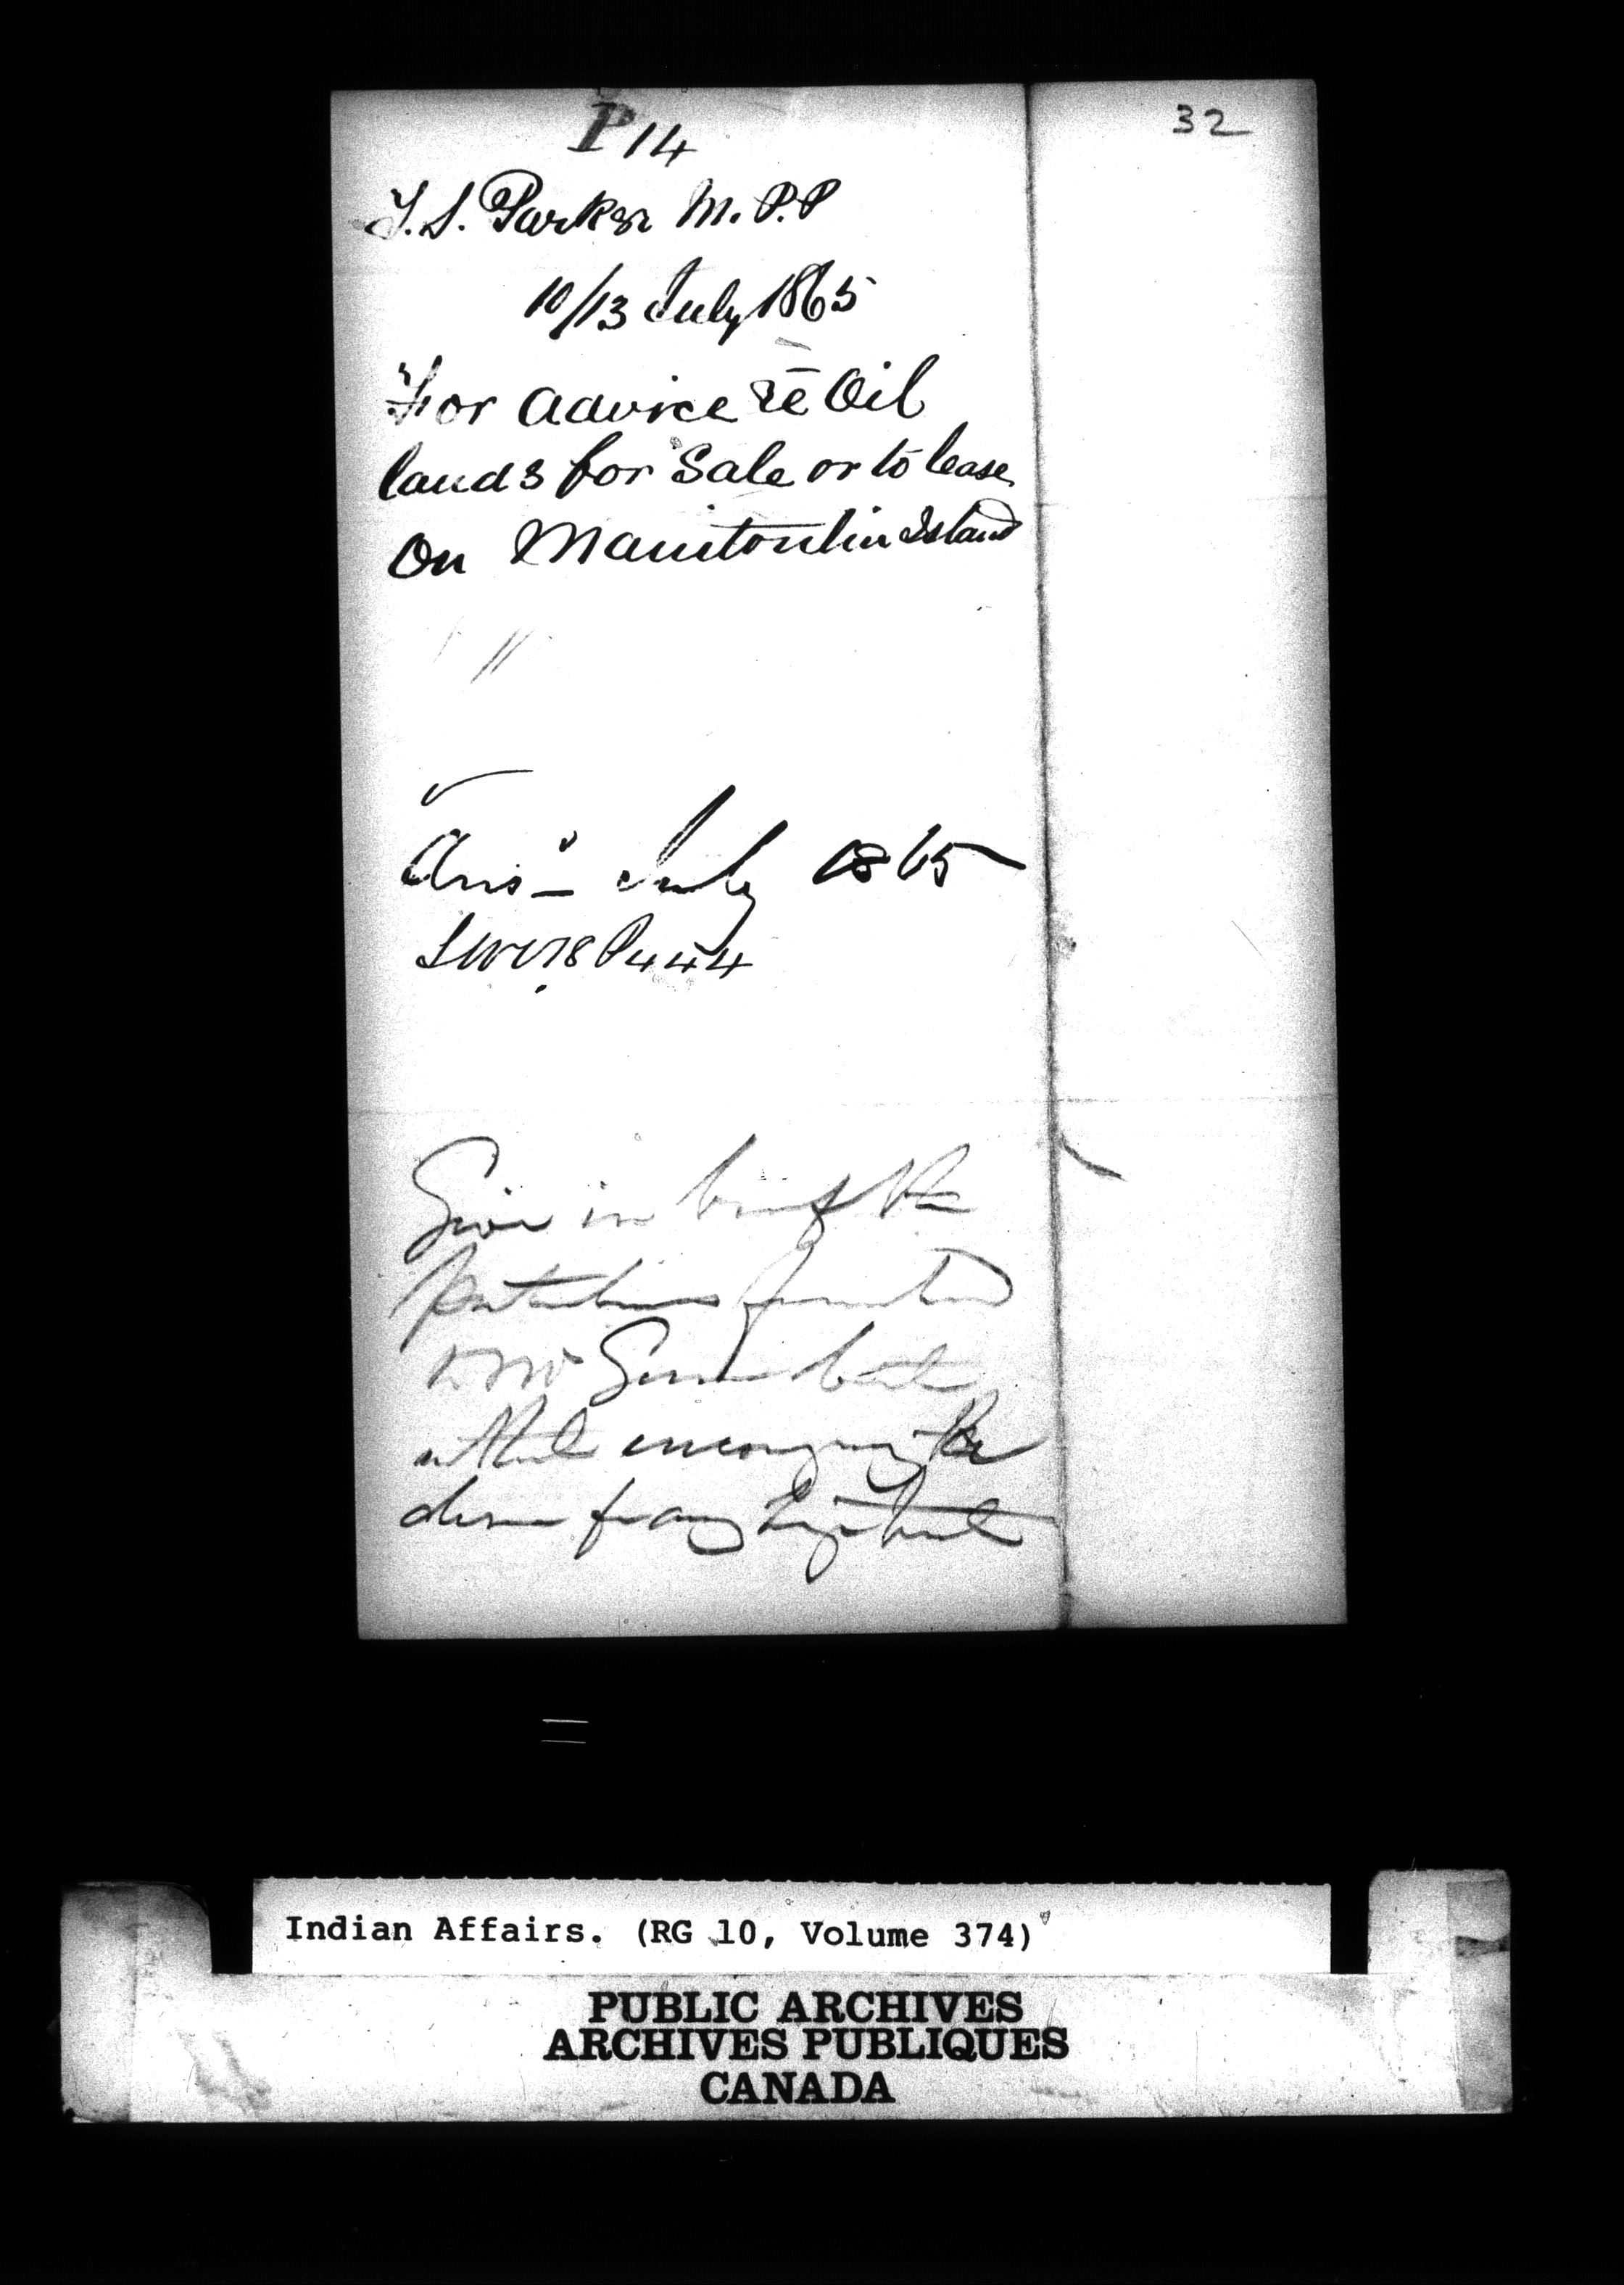 32
P 14
T. S. Parker M.P.P
10/13 July 1865
For advice re Oil
lands for Sale or to lease
On Manitoulin Island
Ansd July 1865
P 444
Give in brief the
particulars furnished
to Mr
without encouraging the
Indian Affairs. (RG 10, Volume 374)
PUBLIC ARCHIVES
ARCHIVES PUBLIQUES
CANADA